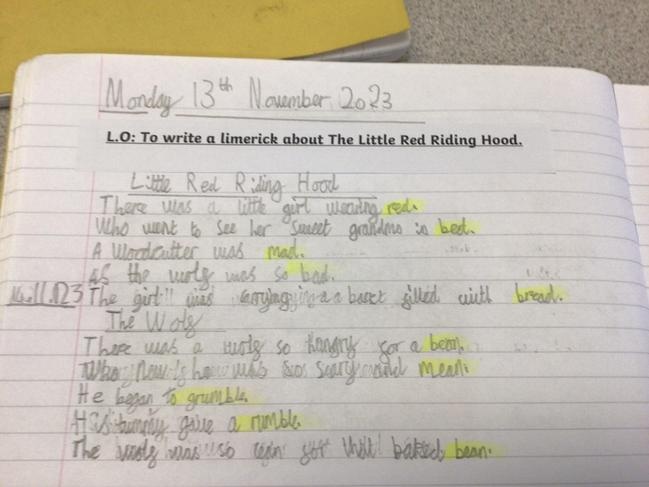 Monday 13th November 2023
L.O: To write a limerick about The Little Red Riding Hood.
Little Red Riding Hood
There was a little girl wearing red.
Who went to see her sweet grandma in bed.
A Woodcutter was mad.
as the wolf was so bad.
The girl was carrying a filled with bread.
The Wolf
There was a wolf so hungry for a bean.
Who was so scary mean.
He began to grumble.
His tummy gave a rumble.
The wolf was so for that baked bean.